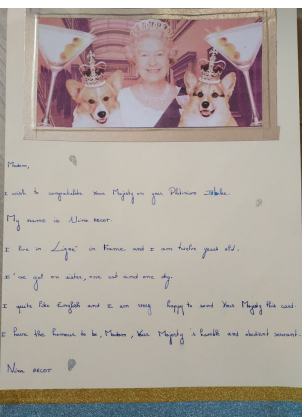 Madam,
I wish to congratulate Your Majesty on your Platinium Jubilee.
My name is Nina DECOT.
I live in Ligné in France and I am twelve years old.
I've got one sister, one cat and one dog.
I quite like English and I am very happy to send Your Majesty this card.
I have the honour to be, Madam, Your Majesty's humble and obedient servant.
Nina DECOT